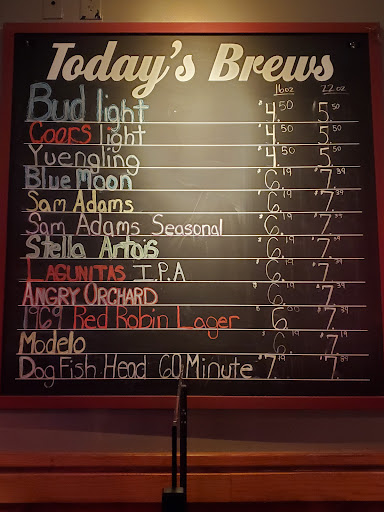 Today's Brews
16oz 22oz
Bud light $4.50 $5.50
Coors light $4.50 $5.50
Yuengling $4.50 $5.50
Blue Moon $6.19 $7.39
Sam Adams $6.19 $7.39
Sam Adams Seasonal $6.19 $7.39
Stella Artois $6.19 $7.39
LAGUNITAS I.P.A $6.19 $7.39
ANGRY ORCHARD $6.19 $7.39
1969 Red Robin Lager $6.00 $7.39
Modelo $6.19 $7.19
Dog Fish Head 60 Minute $7.19